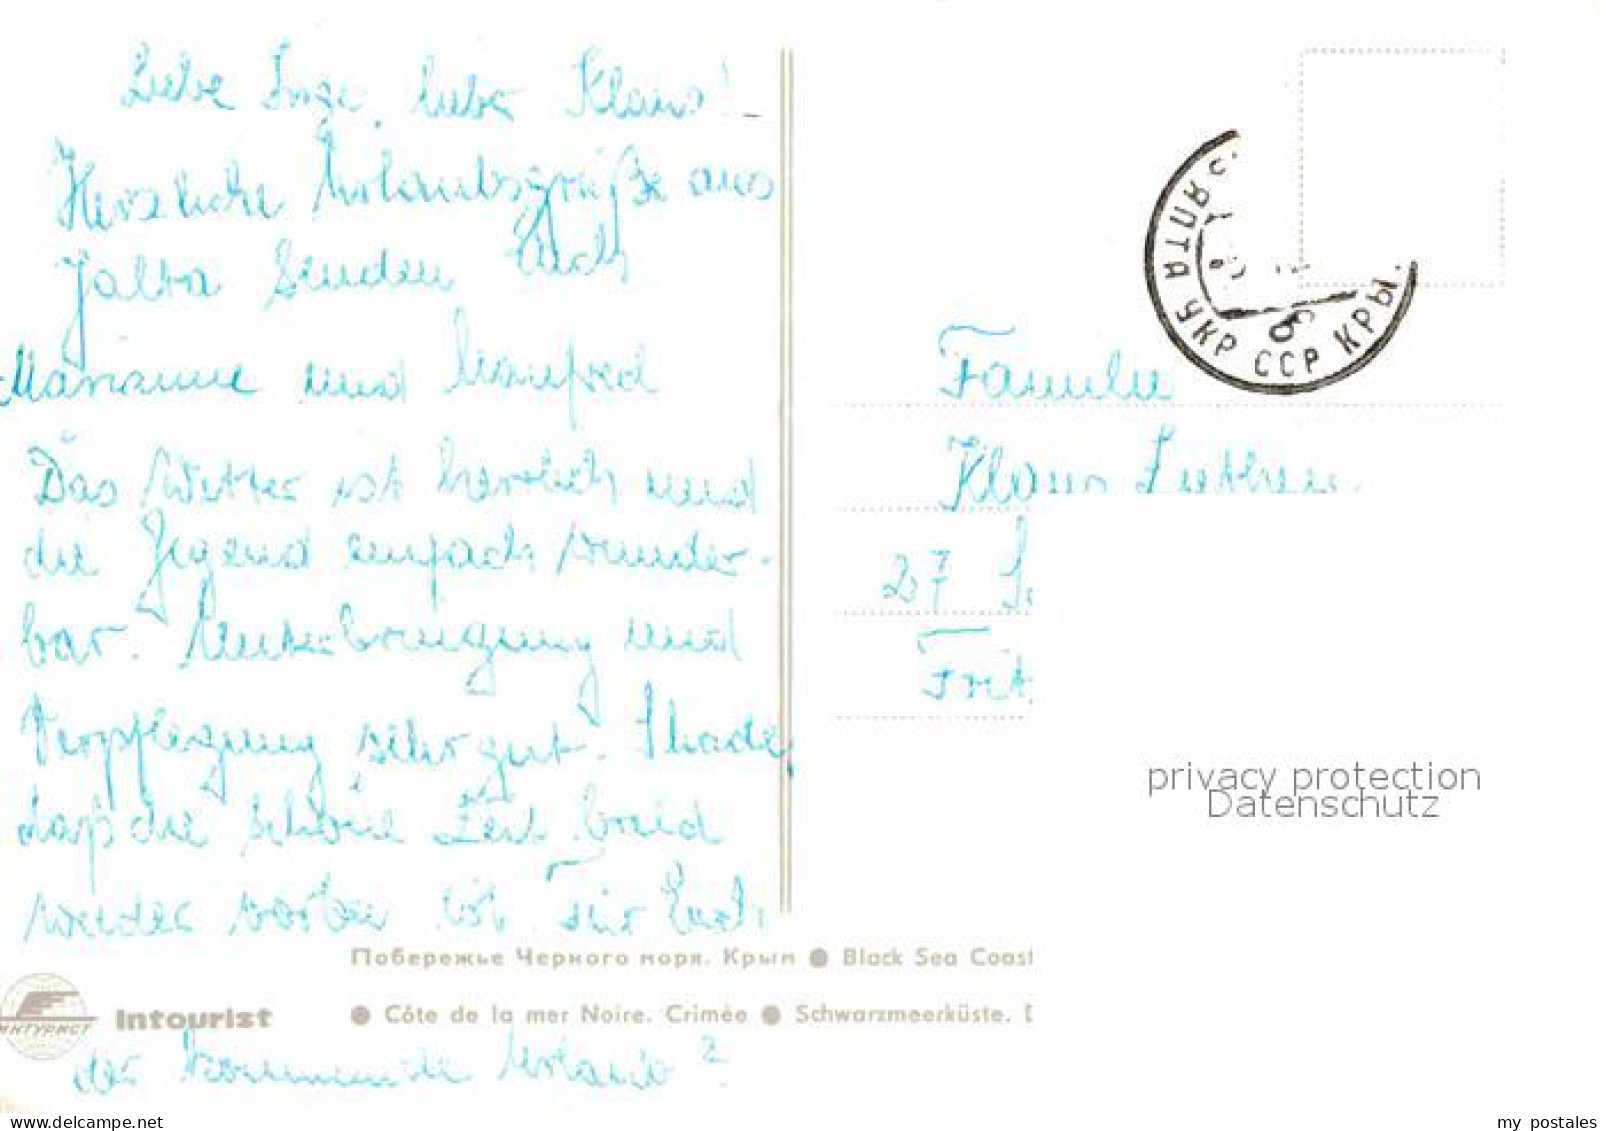 Liebe Inge, lieber Klaus!
Herzliche Urlaubsgrüße aus
Jalta senden Euch
Marianne und Manfred
Das Wetter ist herrlich und
die Gegend einfach wunder-
bar. Unterbringung und
Verpflegung sehr gut. Schade,
daß die schöne Zeit bald
wieder vorbei ist. Für Euch
der kommende Urlaub?
Побережье Черного моря. Крым ● Black Sea Coast
● Côte de la mer Noire. Crimée ● Schwarzmeerküste.
ИНТУРИСТ Intourist
ЯЛТА УКР ССР КРЫ
Familie
Klaus
27
privacy protection
Datenschutz
www.delcampe.net
my_postales